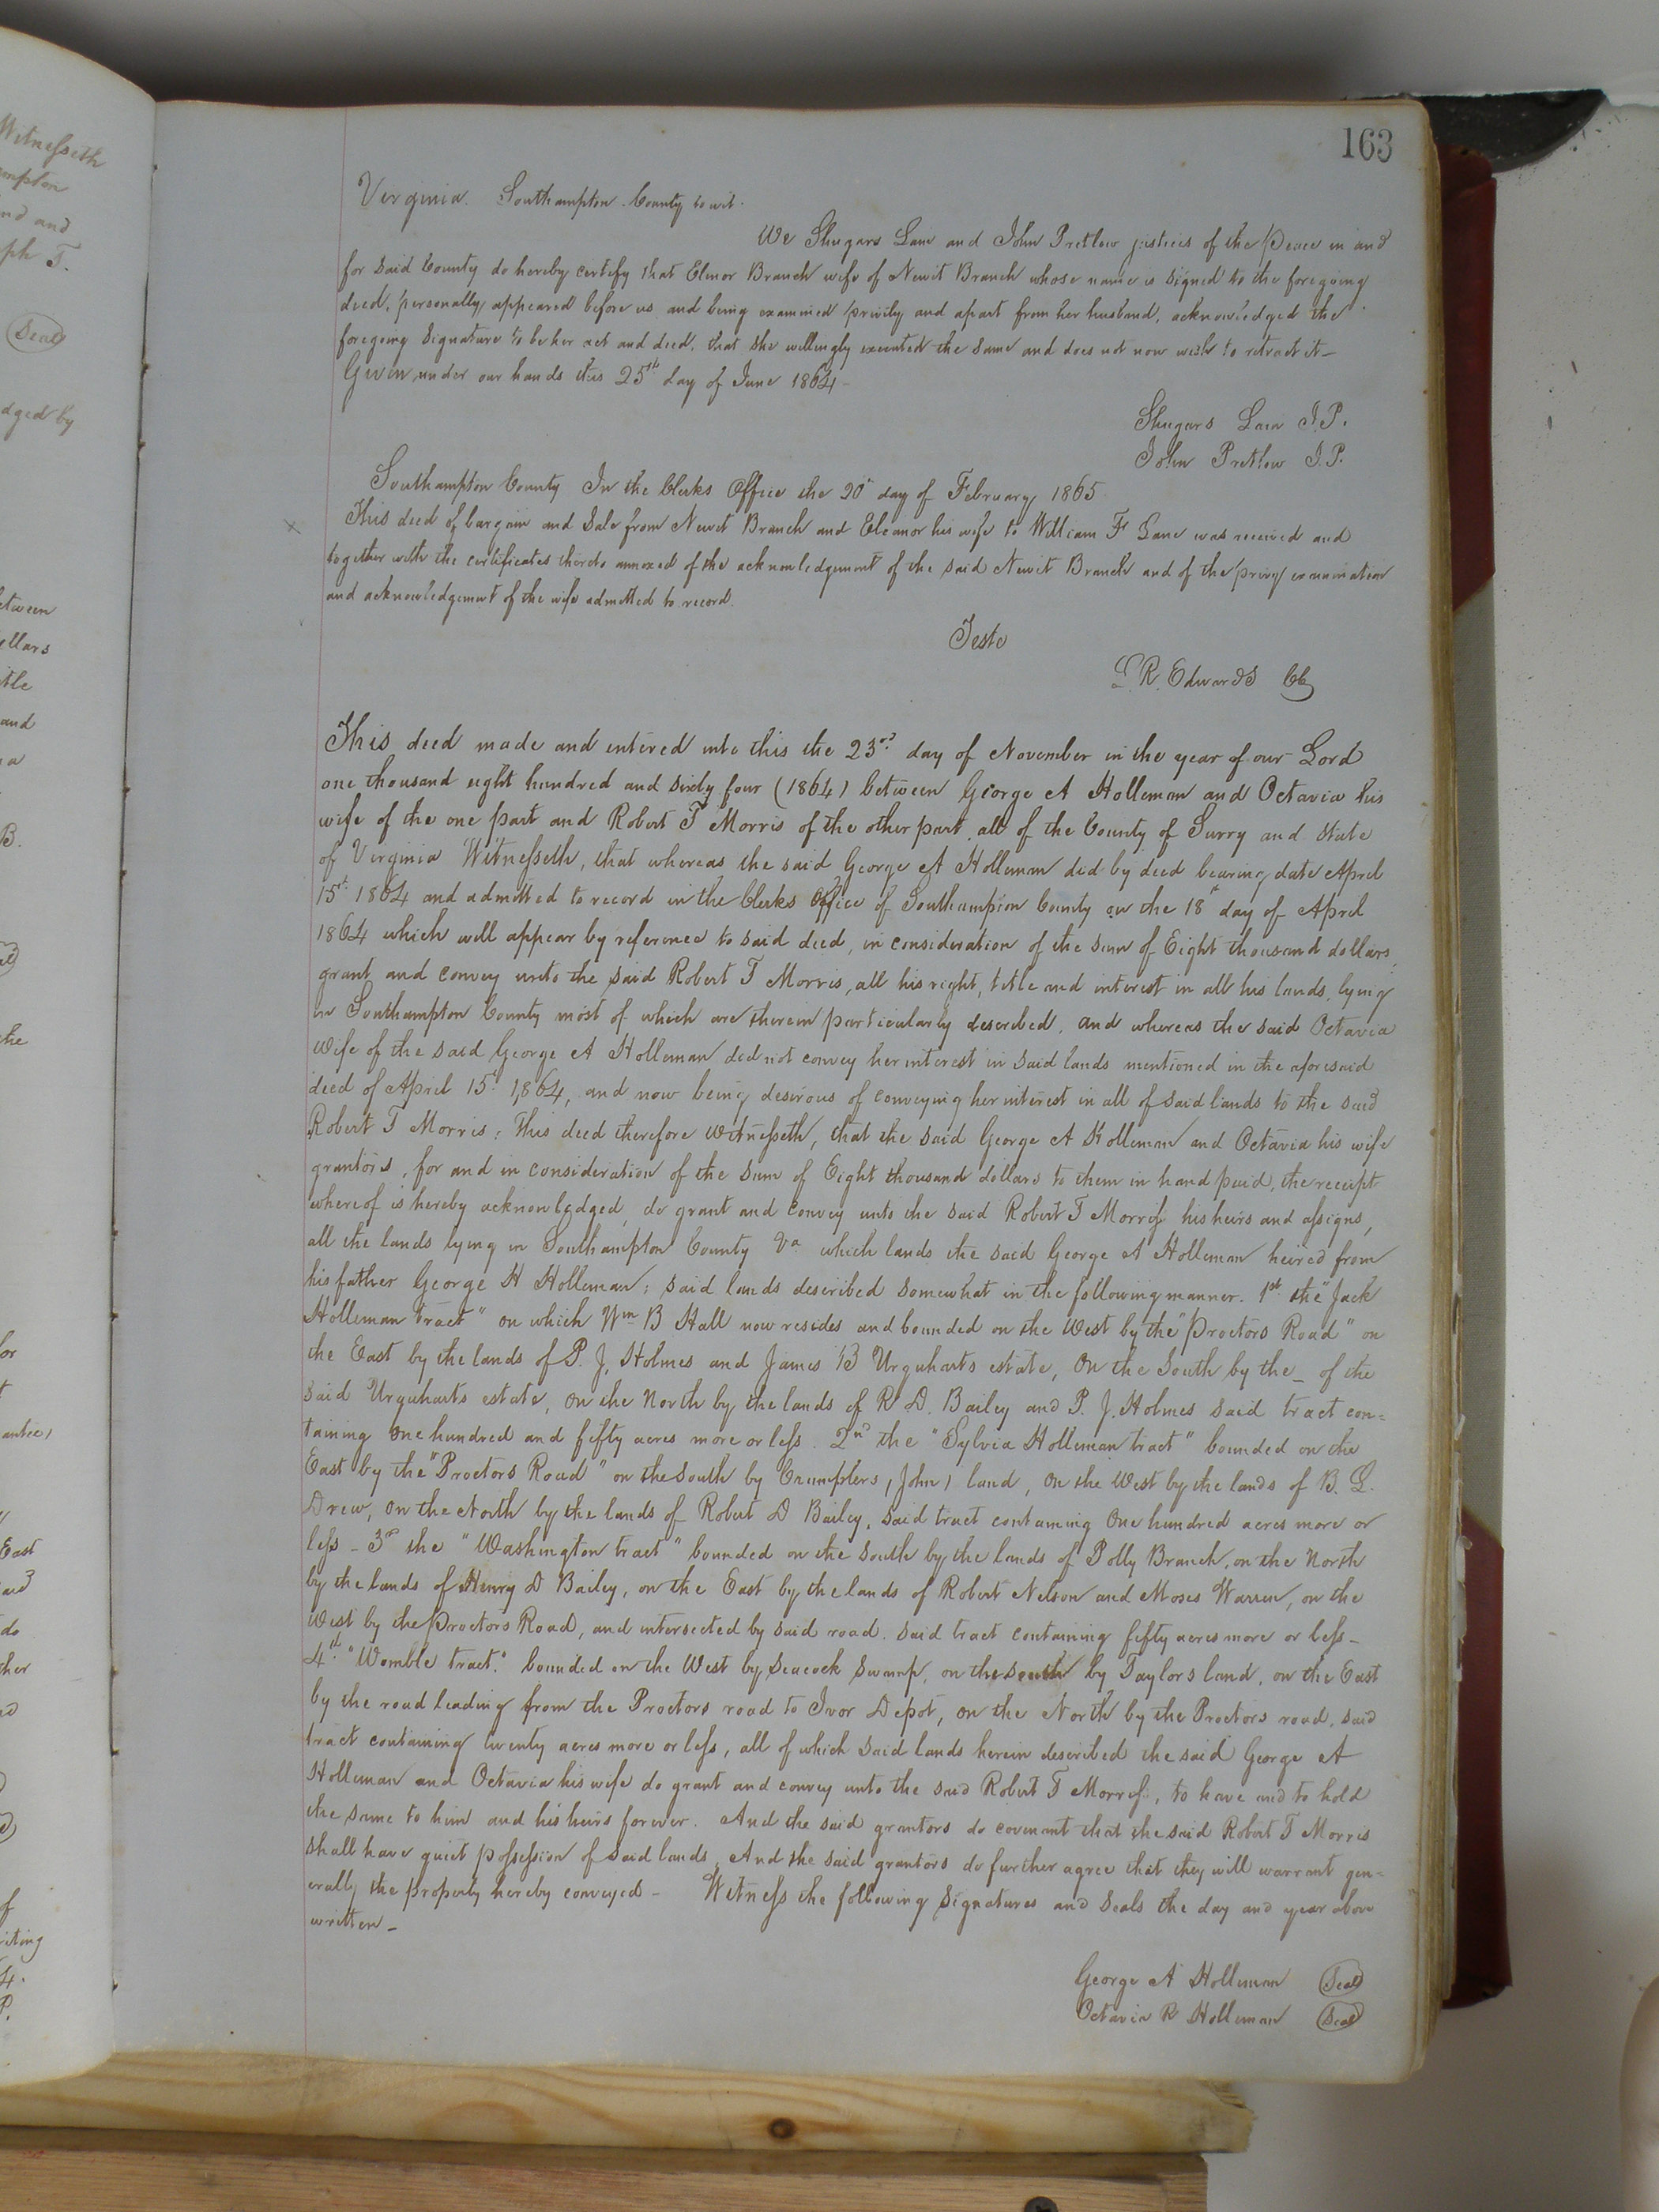 163
Virginia. Southampton County to wit.
We Shugars Lain and John Pretlow justices of the Peace in and
for said County do hereby certify that Elenor Branch wife of Newit Branch whose name is signed to the foregoing
deed, personally appeared before us and being examined privily and apart from her husband, acknowledged the
foregoing signature to be her act and deed, that she willingly executed the same and does not now wish to retract it—
Given under our hands this 25th day of June 1864—
Shugars Lain J.P.
John Pretlow J.P.
Southampton County In the Clerks Office the 20th day of February 1865
This deed of bargain and sale from Newit Branch and Eleanor his wife to William F Lane was received and
together with the certificates thereto annexed of the acknowledgement of the said Newit Branch and of the privy examination
and acknowledgement of the wife admitted to record.
Teste
L. R. Edwards CC
This deed made and entered into this the 23rd day of November in the year of our Lord
one thousand eight hundred and sixty four (1864) between George A Holleman and Octavia his
wife of the one part and Robert T Morris of the other part all of the County of Surry and State
of Virginia Witnesseth, that whereas the said George A Holleman did by deed bearing date April
15th 1864 and admitted to record in the Clerks Office of Southampton County on the 18th day of April
1864 which will appear by reference to said deed, in consideration of the sum of Eight thousand dollars,
grant and convey unto the said Robert T Morris, all his right, title and interest in all his lands, lying
in Southampton County most of which are therein particularly described, and whereas the said Octavia
wife of the said George A Holleman did not convey her interest in said lands mentioned in the aforesaid
deed of April 15th 1864, and now being desirous of conveying her interest in all of said lands to the said
Robert T Morris; This deed therefore witnesseth, that the said George A Holleman and Octavia his wife
grantors, for and in consideration of the sum of Eight thousand dollars to them in hand paid, the receipt
whereof is hereby acknowledged, do grant and convey unto the said Robert T Morris his heirs and assigns,
all the lands lying in Southampton County Va which lands the said George A Holleman heired from
his father George H Holleman; said lands described somewhat in the following manner. 1st the "Jack
Holleman tract" on which Wm B Hall now resides and bounded on the West by the "Proctors Road" on
the East by the lands of P. J. Holmes and James B Urquharts estate, On the South by the_ of the
said Urquharts estate, on the North by the lands of R D. Bailey and P. J. Holmes said tract con=
taining one hundred and fifty acres more or less. 2nd the "Sylvia Holleman tract" bounded on the
East by the "Proctors Road" on the South by Crumplers (John) land, on the West by the lands of B. L.
Drew, on the North by the lands of Robert D Bailey, said tract containing One hundred acres more or
less - 3rd the "Washington tract" bounded on the South by the lands of Polly Branch, on the North
by the lands of Henry D Bailey, on the East by the lands of Robert Nelson and Moses Warren, on the
West by the Proctors Road, and intersected by said road. said tract containing fifty acres more or less -
4th "Womble tract." bounded on the West by Seacock Swamp, on the south by Taylors land, on the East
by the road leading from the Proctors road to Ivor Depot, on the North by the Proctors road, said
tract containing twenty acres more or less, all of which said lands herein described the said George A
Holleman and Octavia his wife do grant and convey unto the said Robert T Morris, to have and to hold
the same to him and his heirs forever. And the said grantors do covenant that the said Robert T Morris
shall have quiet possession of said lands, And the said grantors do further agree that they will warrant gen=
erally the property hereby conveyed - Witness the following signatures and seals the day and year above
written -
George A Holleman Seal
Octavia R Holleman Seal